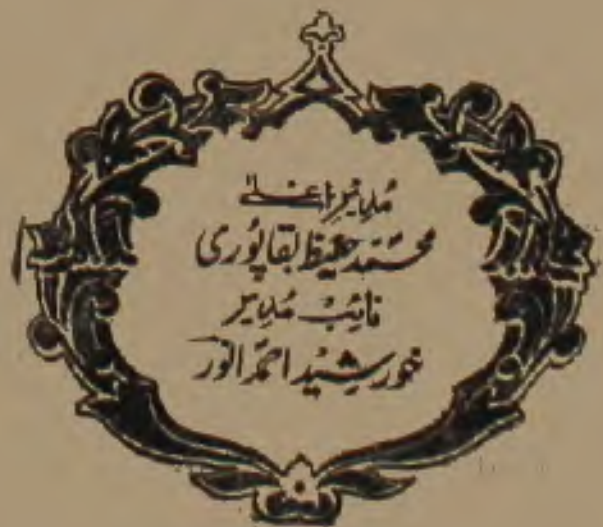 مُدیرِ اعلیٰ
محمّد حفیظ بقاپوری
نائِبْ مُدِیر
خورشید احمد انور